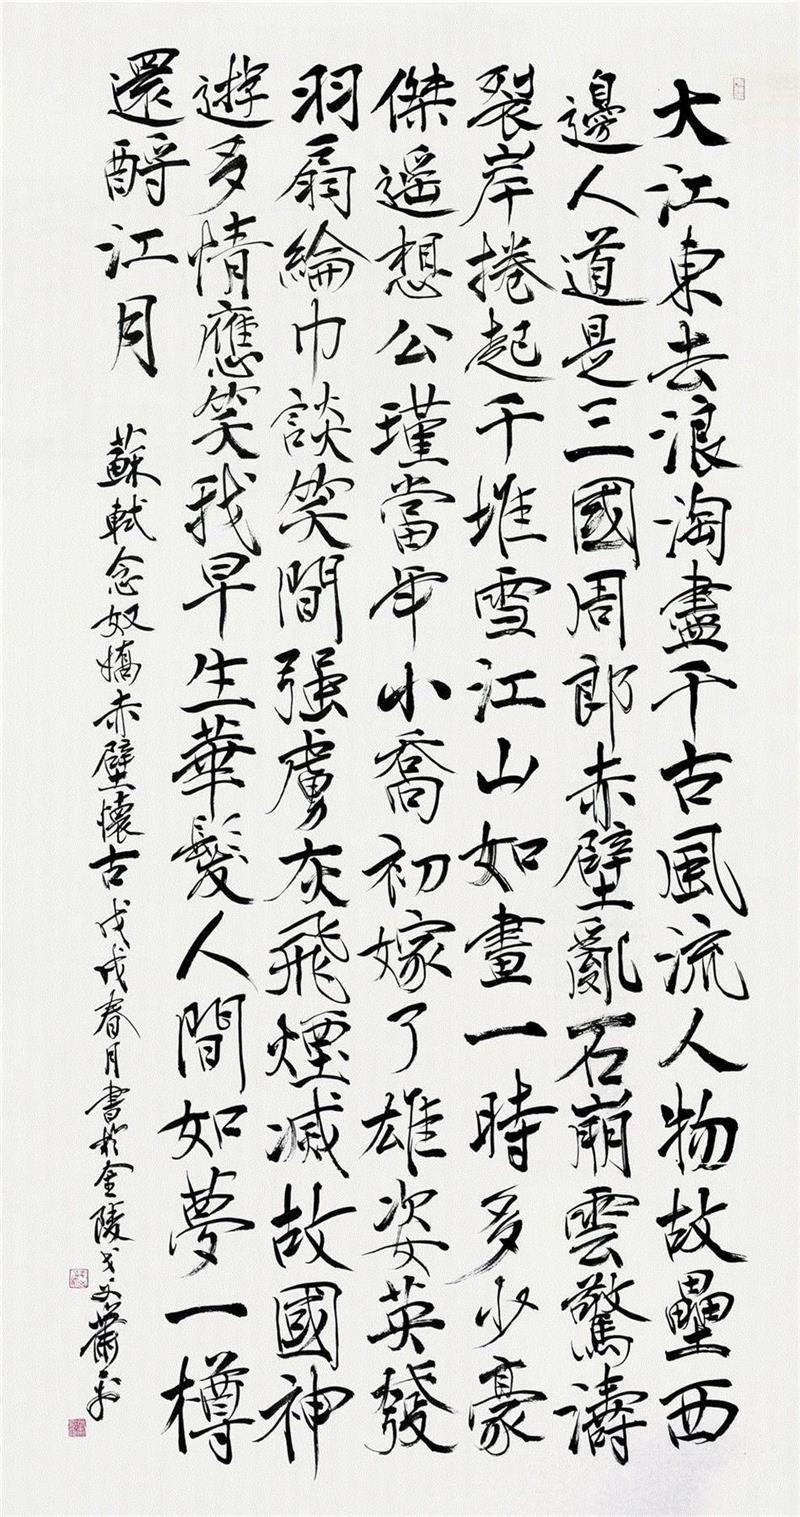 大江東去浪淘盡千古風流人物故壘西
邊人道是三國周郎赤壁亂石崩雲驚濤
裂岸捲起千堆雪江山如畫一時多少豪
傑遥想公瑾當年小喬初嫁了雄姿英發
羽扇綸巾談笑間强虜灰飛煙滅故國神
遊多情應笑我早生華髮人間如夢一樽
還酹江月
蘇軾念奴嬌赤壁懷古戊戌春月書於金陵